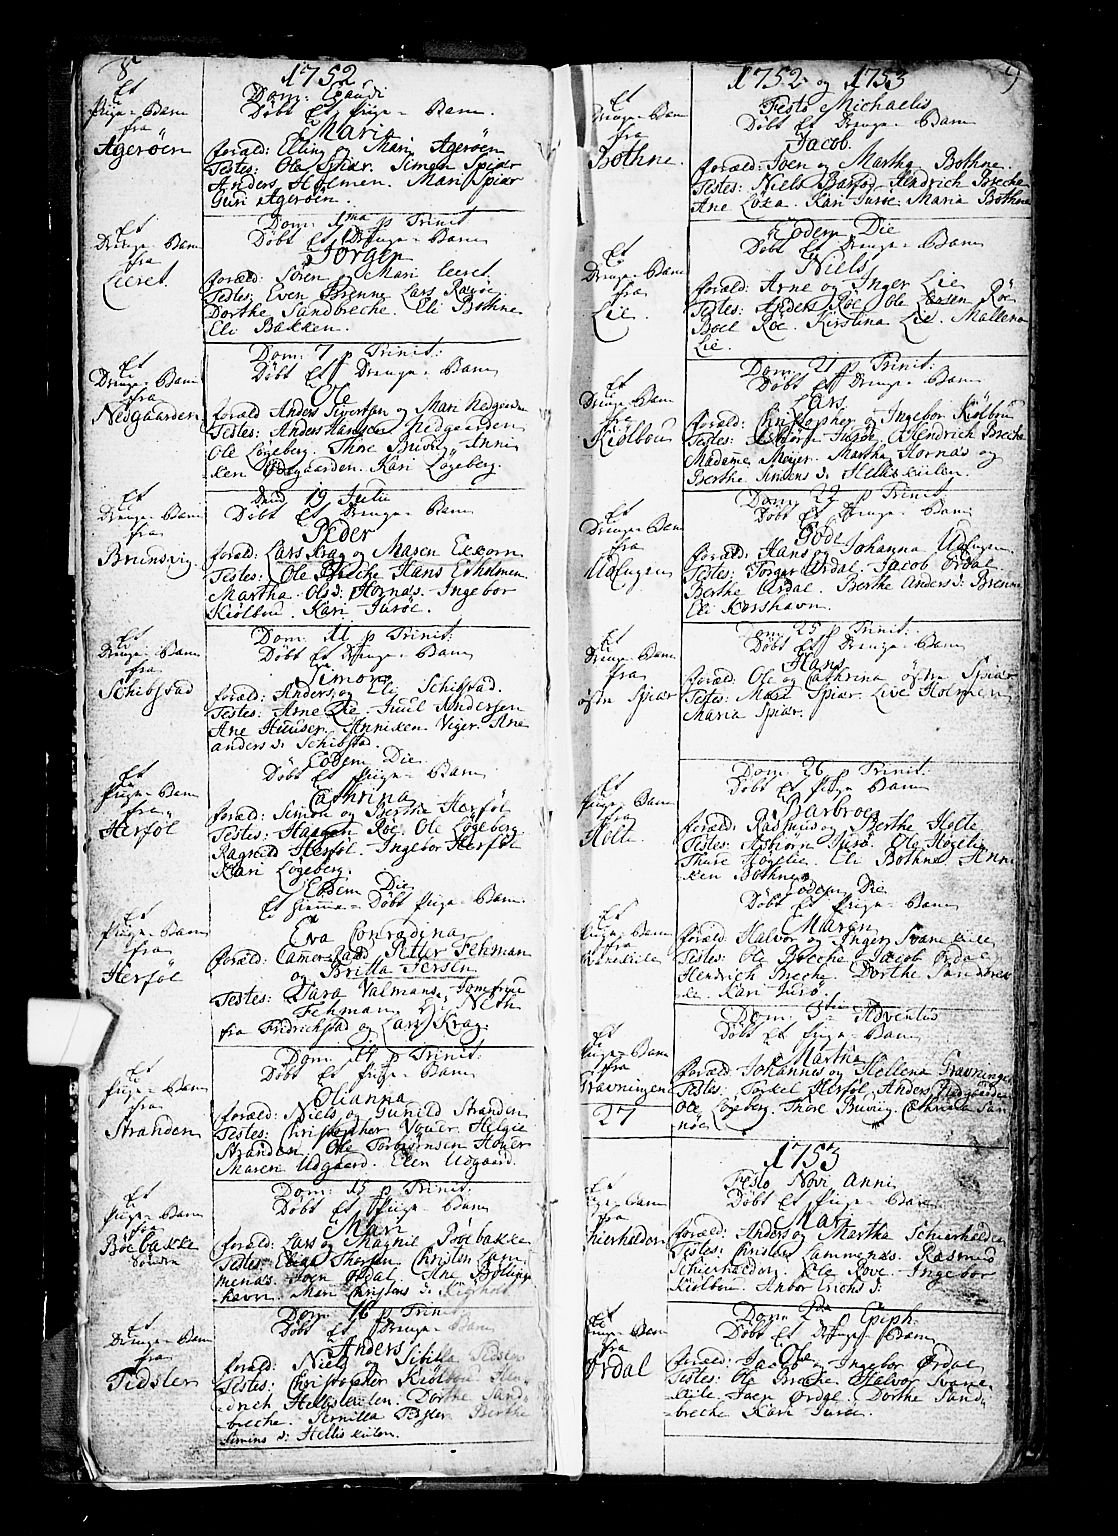 8
1752
Et
Pige-Barn
fra
Agerøen
Dom: Exaudi
Døbt Et Pige-Barn
Maria
foræld: Elling Mari Agerøen
Testes: Ole Spiær. Simen Spiær
Anders Holmen. Mari Spiær
Guri Agerøen.
Et
Drenge-Barn
fra
Leeret.
Dom: 1ma p Trinit
Døbt Et Drenge-Barn
Jörgen
foræld: Sören Mari Leeret.
Testes: Even Brenne Lars
Dorthe Sandbreche. Eli Bothne
Eli Bakken.
Et
Drenge-Barn
fra
Nedgaarden
Dom: 7 p Trinit:
Døbt Et Drenge-Barn
Ole
foræld Anders Sivertsen og Mari Nedgaarden
Testes: Anders Hansen Nedgaarden
Ole Løgeberg. Thore Buvig. Anni
ken Kari Løgeberg.
Et
Drenge-Barn
fra
Brundvig
19 Julii
Døbt Et Drenge-Barn
Peder
foræld: Lars Krag og Maren
Testes: Ole Breche Hans Esholmen
Martha Ols d: Hornæs. Ingebor
Kiölboe. Kari
Et
Drenge-Barn
fra
Schibstad
Dom: 11 p Trinit:
Døbt Et Drenge-Barn
Simon
foræld: Anders og Eli Schibstad.
Testes: Arne Lie. Juul Andersen
Ane Huuser. Anniken Viger. Ane
anders d: Schibstad.
Et
Pige-Barn
fra
Herføl
Eodem Die
Døbt Et Pige-Barn
Cathrina
foræld: Simon og Berthe Herføl
Testes: Haagen Roe. Ole Løgeberg
Ragnild Herføl. Ingebor Herføl
Kari Løgeberg.
Et
Pige-Barn
fra
Herføl
Eodem Die
Et Døbt Pige-Barn.
Eva Conradina
foræld: Petter Fehman
og Britta Jersen
Testes: Valmans. Jomfrue
Fehman
fra Fridrichstad og Lars Krag.
Et
Pige-Barn
fra
Stranden
Dom: 14 p Trinit:
Døbt Et Pige-Barn
Olianna
foræld: Niels og Gunild Stranden
Testes: Christopher Helgie
Stranden. Ole Torbiørnsen
Maren Udgaard. Elen Udgaard.
Et
Pige-Barn
fra
Böebakke
Søndre
Dom: 15 p Trinit:
Døbt Et Pige-Barn
Mari
foræld: Lars og Magnil Böebakke
Testes: Thorsen Christen Lam
menæs. Joen Ørdal. Ane
havn. Mari Christens d:
Et
Drenge-Barn
fra
Tidsler
Dom: 16 p Trinit
Døbt Et Drenge-Barn
Anders
foræld: Niels og Sibilla Tidsler
Testes: Christopher Kiölboe. Hen
drich Helliskilen. Dorthe Sand
breche. Pernilla Tidsler Berthe
Simens d: Helliskilen.
9
1752 og 1753
Et
Drenge-Barn
fra
Bothne.
Festo Michaelis
Døbt Et Drenge-Barn
Jacob
foræld: Joen og Martha Bothne.
Testes: Niels Barfod. Hendrich Breche
Ane Löka. Kari Maria Bothne
Et
Drenge-Barn
fra
Lie.
Eodem Die
Døbt Et Drenge-Barn
Niels
foræld: Arne og Inger Lie
Testes: Anders Roe Ole Larsen Röe
Boel Roe. Kirstina Lie. Mallena
Lie.
Et
Drenge-Barn
fra
Kiölboe
Dom: 21 p Trinit:
Døbt Et Drenge-Barn
Lars
foræld: Christopher og Ingebor Kiölboe
Testes: Hendrich Breche
Madame Meyer. Martha Hornæs og
Berthe Simens d: Helliskilen.
Et
Drenge-Barn
fra
Udlugen
Dom: 22 p Trinit
Døbt Et Drenge-Barn
foræld: Hans og Johanna Udlugen
Testes: Torger Ørdal Jacob Ørdal
Berthe Ørdal. Berthe Anders d: Brenne
Eli Korshavn.
Et
Drenge-Barn
fra
østre Spiær
Dom: 25 p Trinit:
Døbt Et Drenge-Barn
Hans
foræld: Ole og Cathrina østre Spiær
Testes: Mari Spiær. Live Holmen
Maria Spiær.
Et
Pige-Barn
fra
Holte
Dom: 26 p Trinit:
Døbt Et Pige-Barn
Barbroe
foræld: Rasmus og Berthe Holte
Testes: Asbiørn Ole
Thure Eli Bothne Anni
ken Bothne.
Et
Pige-Barn
fra
Svanekiile
Eodem Die
Døbt Et Pige-Barn
Maren
foræld: Halvor og Inger Svanekiile
Testes: Ole Breche Jacob Ørdal
Hendrich Breche. Dorthe Sandbre
ke Kari
Et
Pige-Barn
fra
Gravningen
27
Dom: Adventus
Døbt Et Pige-Barn
Martha
foræld: Johannes og Hellena Gravningen
Testes: Torkel Herføl. Anders Nedgaarden
Ole Løgeberg. Thore Buvig. Cathrina
1753
Et
Pige-Barn
fra
Schierhalden
Festo Novi Anni
Døbt Et Pige-Barn
Mari
foræld: Anders og Martha Schierhalden
Testes: Christen Lammenæs. Rasmus
Schierhalden. Ole Rove. Ingebor
Kiölboe. Anbor Erichs d:
Et
Drenge-Barn
fra
Ørdal
Dom: 2da Epiph:
Døbt Et Drenge-Barn
Ole
foræld: Jacob og Ingebor Ørdal
Testes: Ole Breche. Halvor Svane
kiile. Joen Ørdal. Dorthe Sand
breche Kari